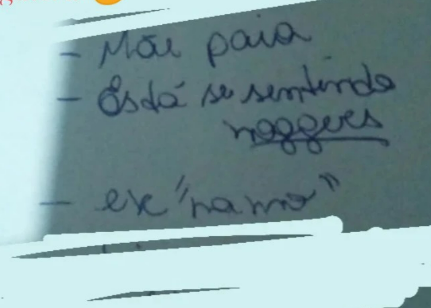 - Mãe paia
- Está se sentindo
noggers
- ex "namo"